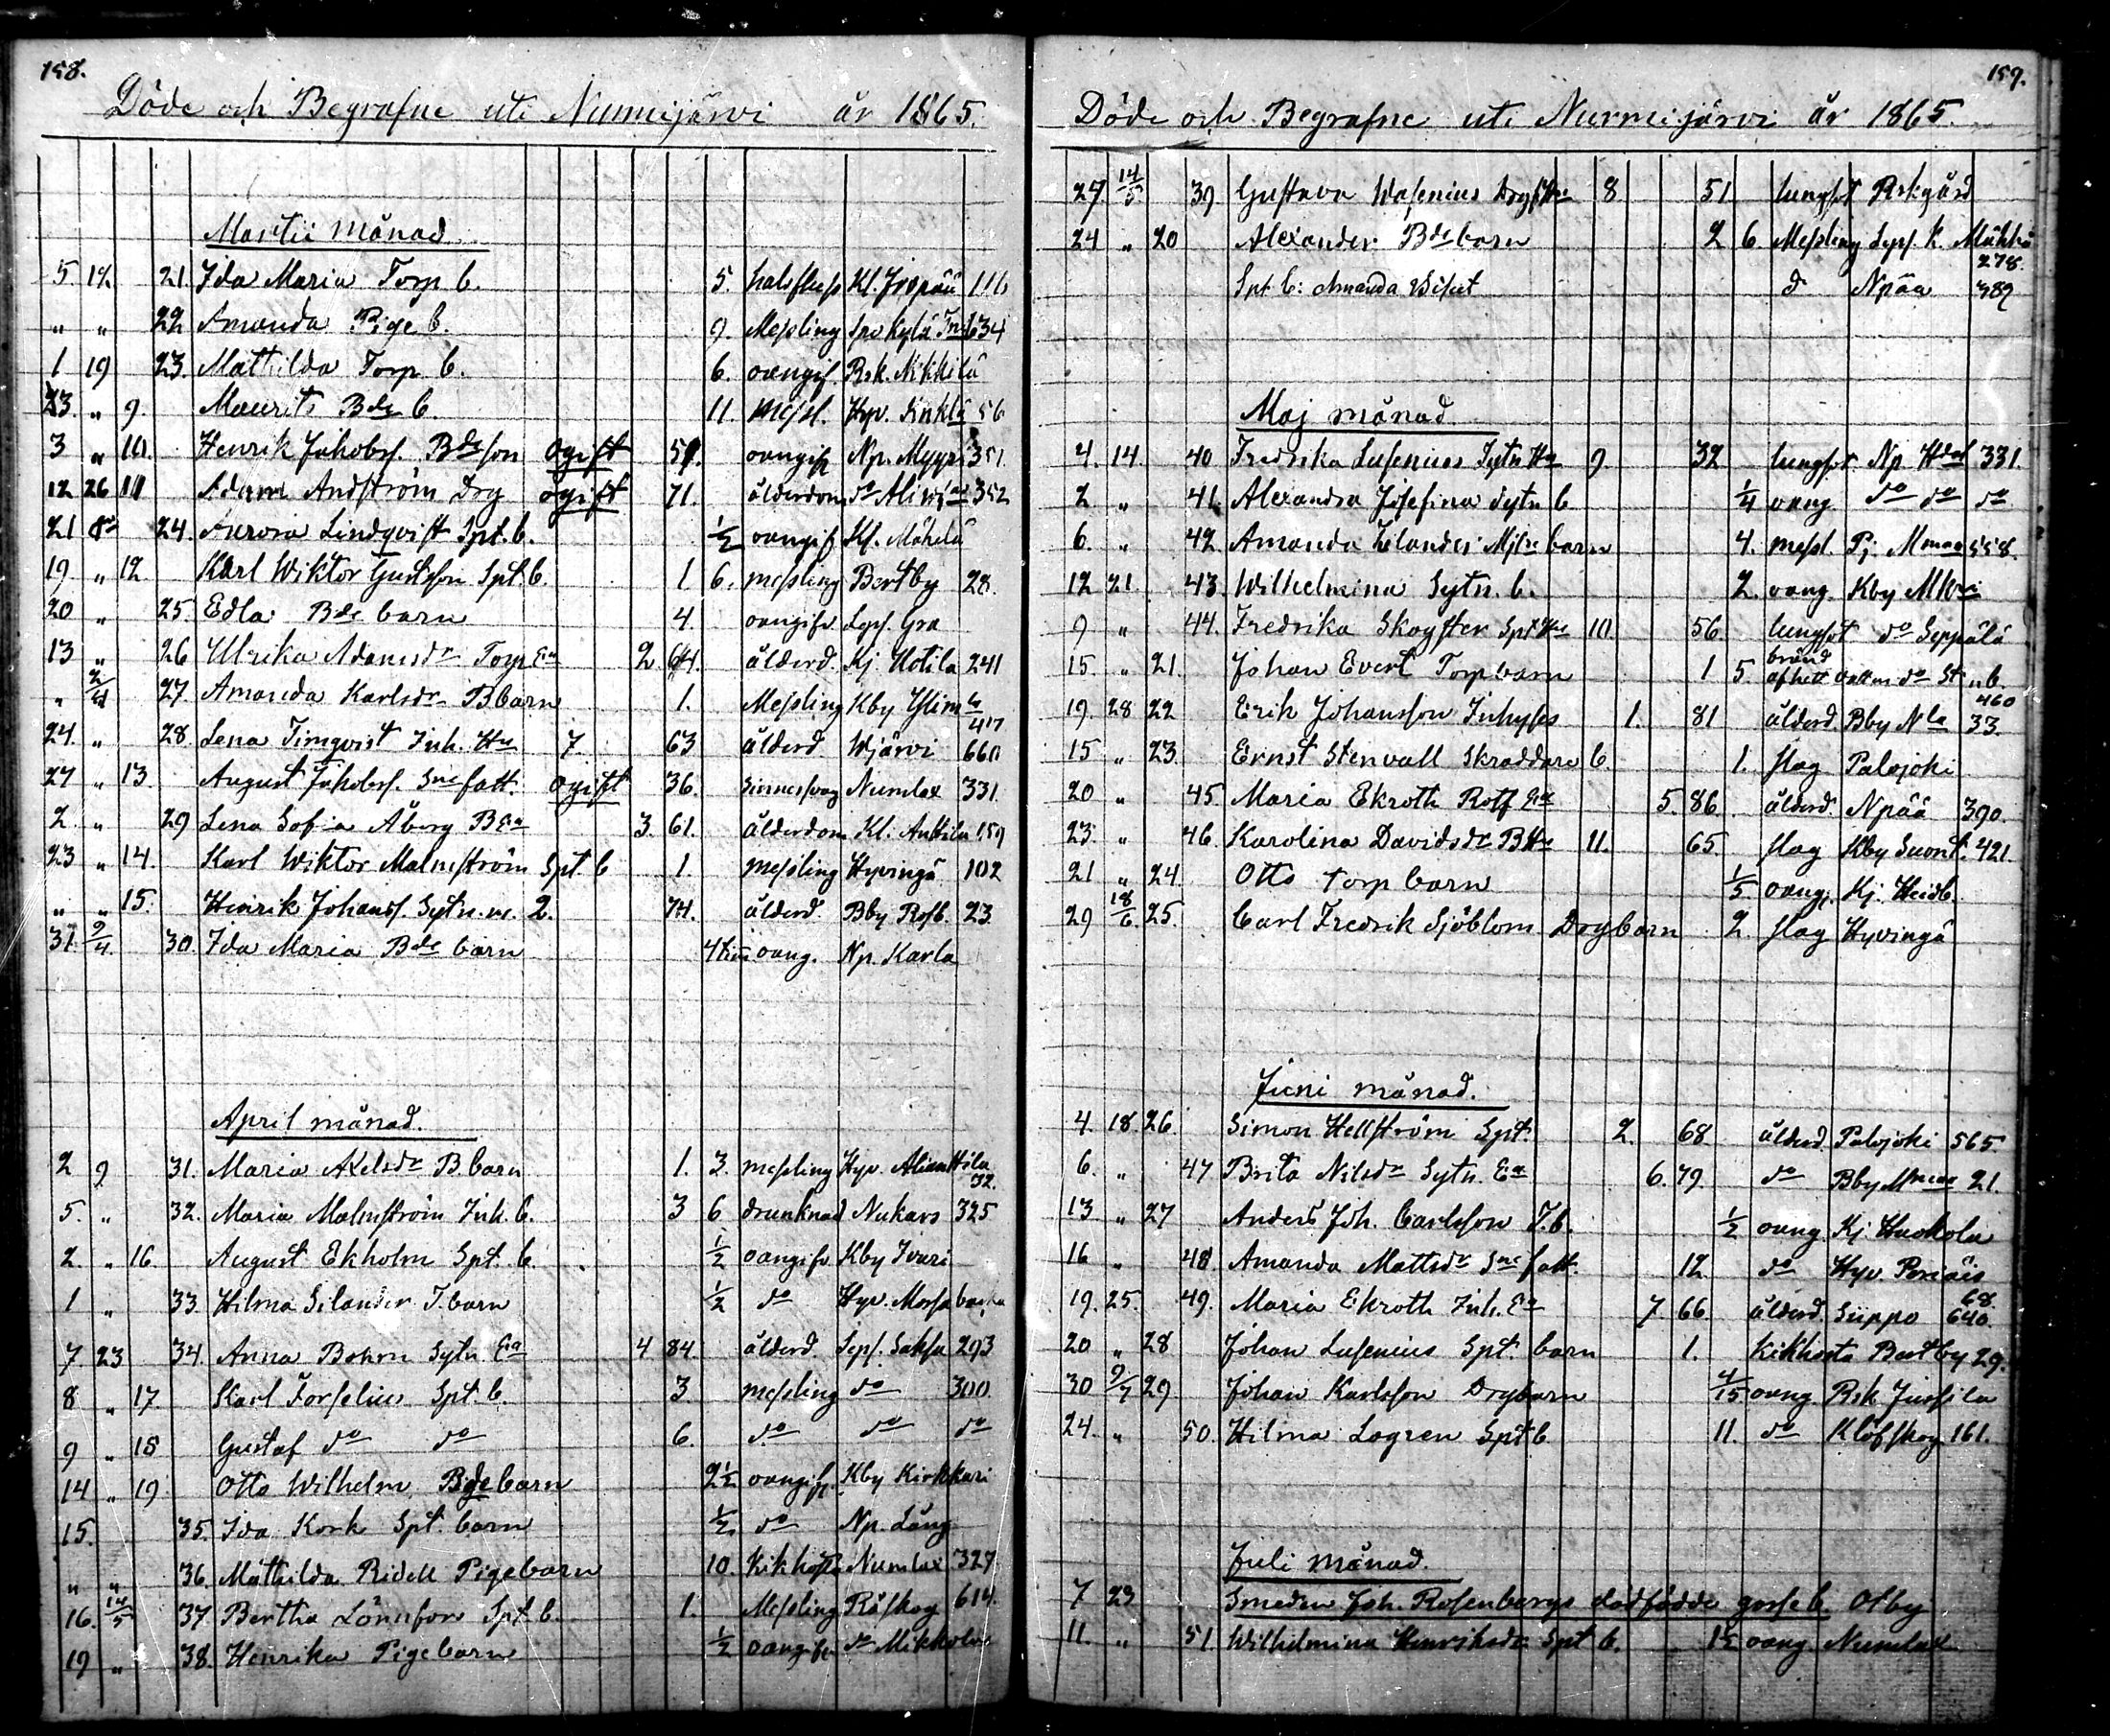 158.
Döde och Begrafne uti Nurmijärvi år 1865.
Martii månad
5. 12 21. Ida Maria Torp b. 5. halsfluss Kl. 116
" " 22 Amanda Pige b. 9. Messling 634
1 19 23. Mathilda Torp b. 6. oangif. Rsk. Nikkilä
23. " 9. Maurits Bde b. 11. messl. Hyv. 56
3 " 10. Henrik Jakobss. Bdeson ogift 59. oangifv Np. Myyri 351.
12 26 11 Adam Andström Drg ogift 71. ålderdom do 352
21 do 24. Aurora Lindqvist Spt. b. ½ oangif Kl. Mäkelä
19. " 12 Karl Wiktor Gustafson Spt. b. 1 6. messling Bertby 28.
20 " 25. Edla Bde barn 4. oangifv Leps. Gra
13 " 26 Ulrika Adamsdr Torp Ea 2 64. ålderd. Kj. Uotila 241
" 2/4 27. Amanda Karlsdr B barn 1. Messling Kby 417
24. " 28. Lena Timqvist Inh. Hu 7 63 ålderd. Wjärvi 660
27 " 13. August Jakobss. Sne fatt. ogift 36. Sinnessvag Numlax 331.
2. " 29 Lena Sofia Åberg B Ea 3. 61. ålderdom Kl. Anttila 159
23 " 14. Karl Wiktor Malmström Spt. b 1. messling Hyvingä 102
" " 15. Henrik Johanss. Sytn. m. 2. 74. ålderd. Bby Rosb. 23
31. 9/4. 30. Ida Maria Bde barn oang. Np. Karla
April månad.
2 9 31. Maria Axelsdr B. barn 1. 3. messling Hyv. Alianttila 32.
5. " 32. Maria Malmström Inh. b. 3 6 drunknad Nukars 325
2. " 16. August Ekholm Spt. b. ½ oangifv Kby Ivari
1 " 33. Hilma Silander T. barn ½ do Hyv.
7 23 34. Anna Bohm Sytn. Ea 4 84. ålderd. Leps. Saksa 293
8 " 17. Karl Forselius Spt. b. 3. messling do 300
9 " 18 Gustaf do do 6. do do do
14 " 19 Otto Wilhelm Bde barn 2½ oangifv. Kby Kirkkari
15. 35. Ida Kork Spt. barn ½ do Np. Lång
" " 36. Mathilda Ridell Pigebarn 10. Kikhosta Numlax 327
16. 14/5 37. Bertha Lönnfors Spt. b. 1. Messling Röskog 614.
19 " 38. Henrika Pigebarn ½ oangifv do Mikkola
159.
Döde och Begrafne uti Nurmijärvi år 1865.
27. 14/5 39. Gustava Wasenius Drg Hu 8 51 lungsot Prkgård
24 " 20 Alexander Bde barn 2 6 Messling Leps. K. Mäkkä 278.
Spt. b: Amanda d Npää 382
Maj månad.
4. 14. 40 Fredrika Lusenius Sytn Hu 9 32 lungsot Np. 331.
2 " 41. Alexandra Josefina Sytn b ¼ oang. do do do
6. " 42. Amanda Zelander Mjln barn 4. messl. Pj. 558.
12 21. 43. Wilhelmina Sytn. b. 2. oang. Kby
9 " 44. Fredrika Skogster Spt Hu 10. 56. lungsot do Seppälä
15. " 21. Johan Evert Torp barn 1 5. bränd af hett vatten do 460
19. 28 22 Erik Johansson Inhyses 1. 81 ålderd. Bby Nla 33.
15 " 23. Ernst Stenvall Skraddare b. 1. slag Palojoki
20 " 45 Maria Ekroth Rotf Ea 5. 86. ålderd. Npää 390.
23. " 46. Karolina Davidsdr B Hu 11. 65. slag Kby Suont. 421.
21 " 24. Otto Torp barn 1/5 oang. Kj. Heidb.
29 18/6 25. Carl Fredrik Sjöblom Drg barn 2. slag Hyvingä
Juni månad.
4. 18. 26. Simon Hellström Spt. 2. 68 ålderd. Palojoki 565.
6. " 47 Brita Nilsdr Sytn. Ea 6. 79. do Bby 21.
13 " 27 Anders Joh. Carlsson T. b. ½ oang. Kj.
16 " 48 Amanda Mattsdr Sne fatt. 12. do Hyv. 68.
19. 25. 49. Maria Ekroth Inh. Ea 7. 66. ålderd. Siippo 640.
20 " 28 Johan Lusenius Spt. barn 1. Kikhosta Bertby 29.
30 9/7 29. Johan Karlsson Drg barn 4/15 oang. Rsk. Jussila
24. " 50. Hilma Lagren Spt b 11. do Klöfskog 161.
Juli månad.
7 23 Smeden Joh. Rosenbergs dödfödde gosse b. Otby
11. " 51. Wilhelmina Henriksdr Spt b. 1½ oang Numlax